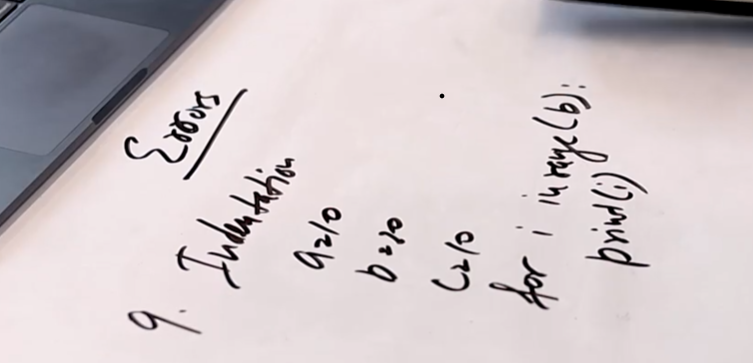 Errors
9. Indentation
a=10
b=20
c=10
for i in range(b):
print(i)